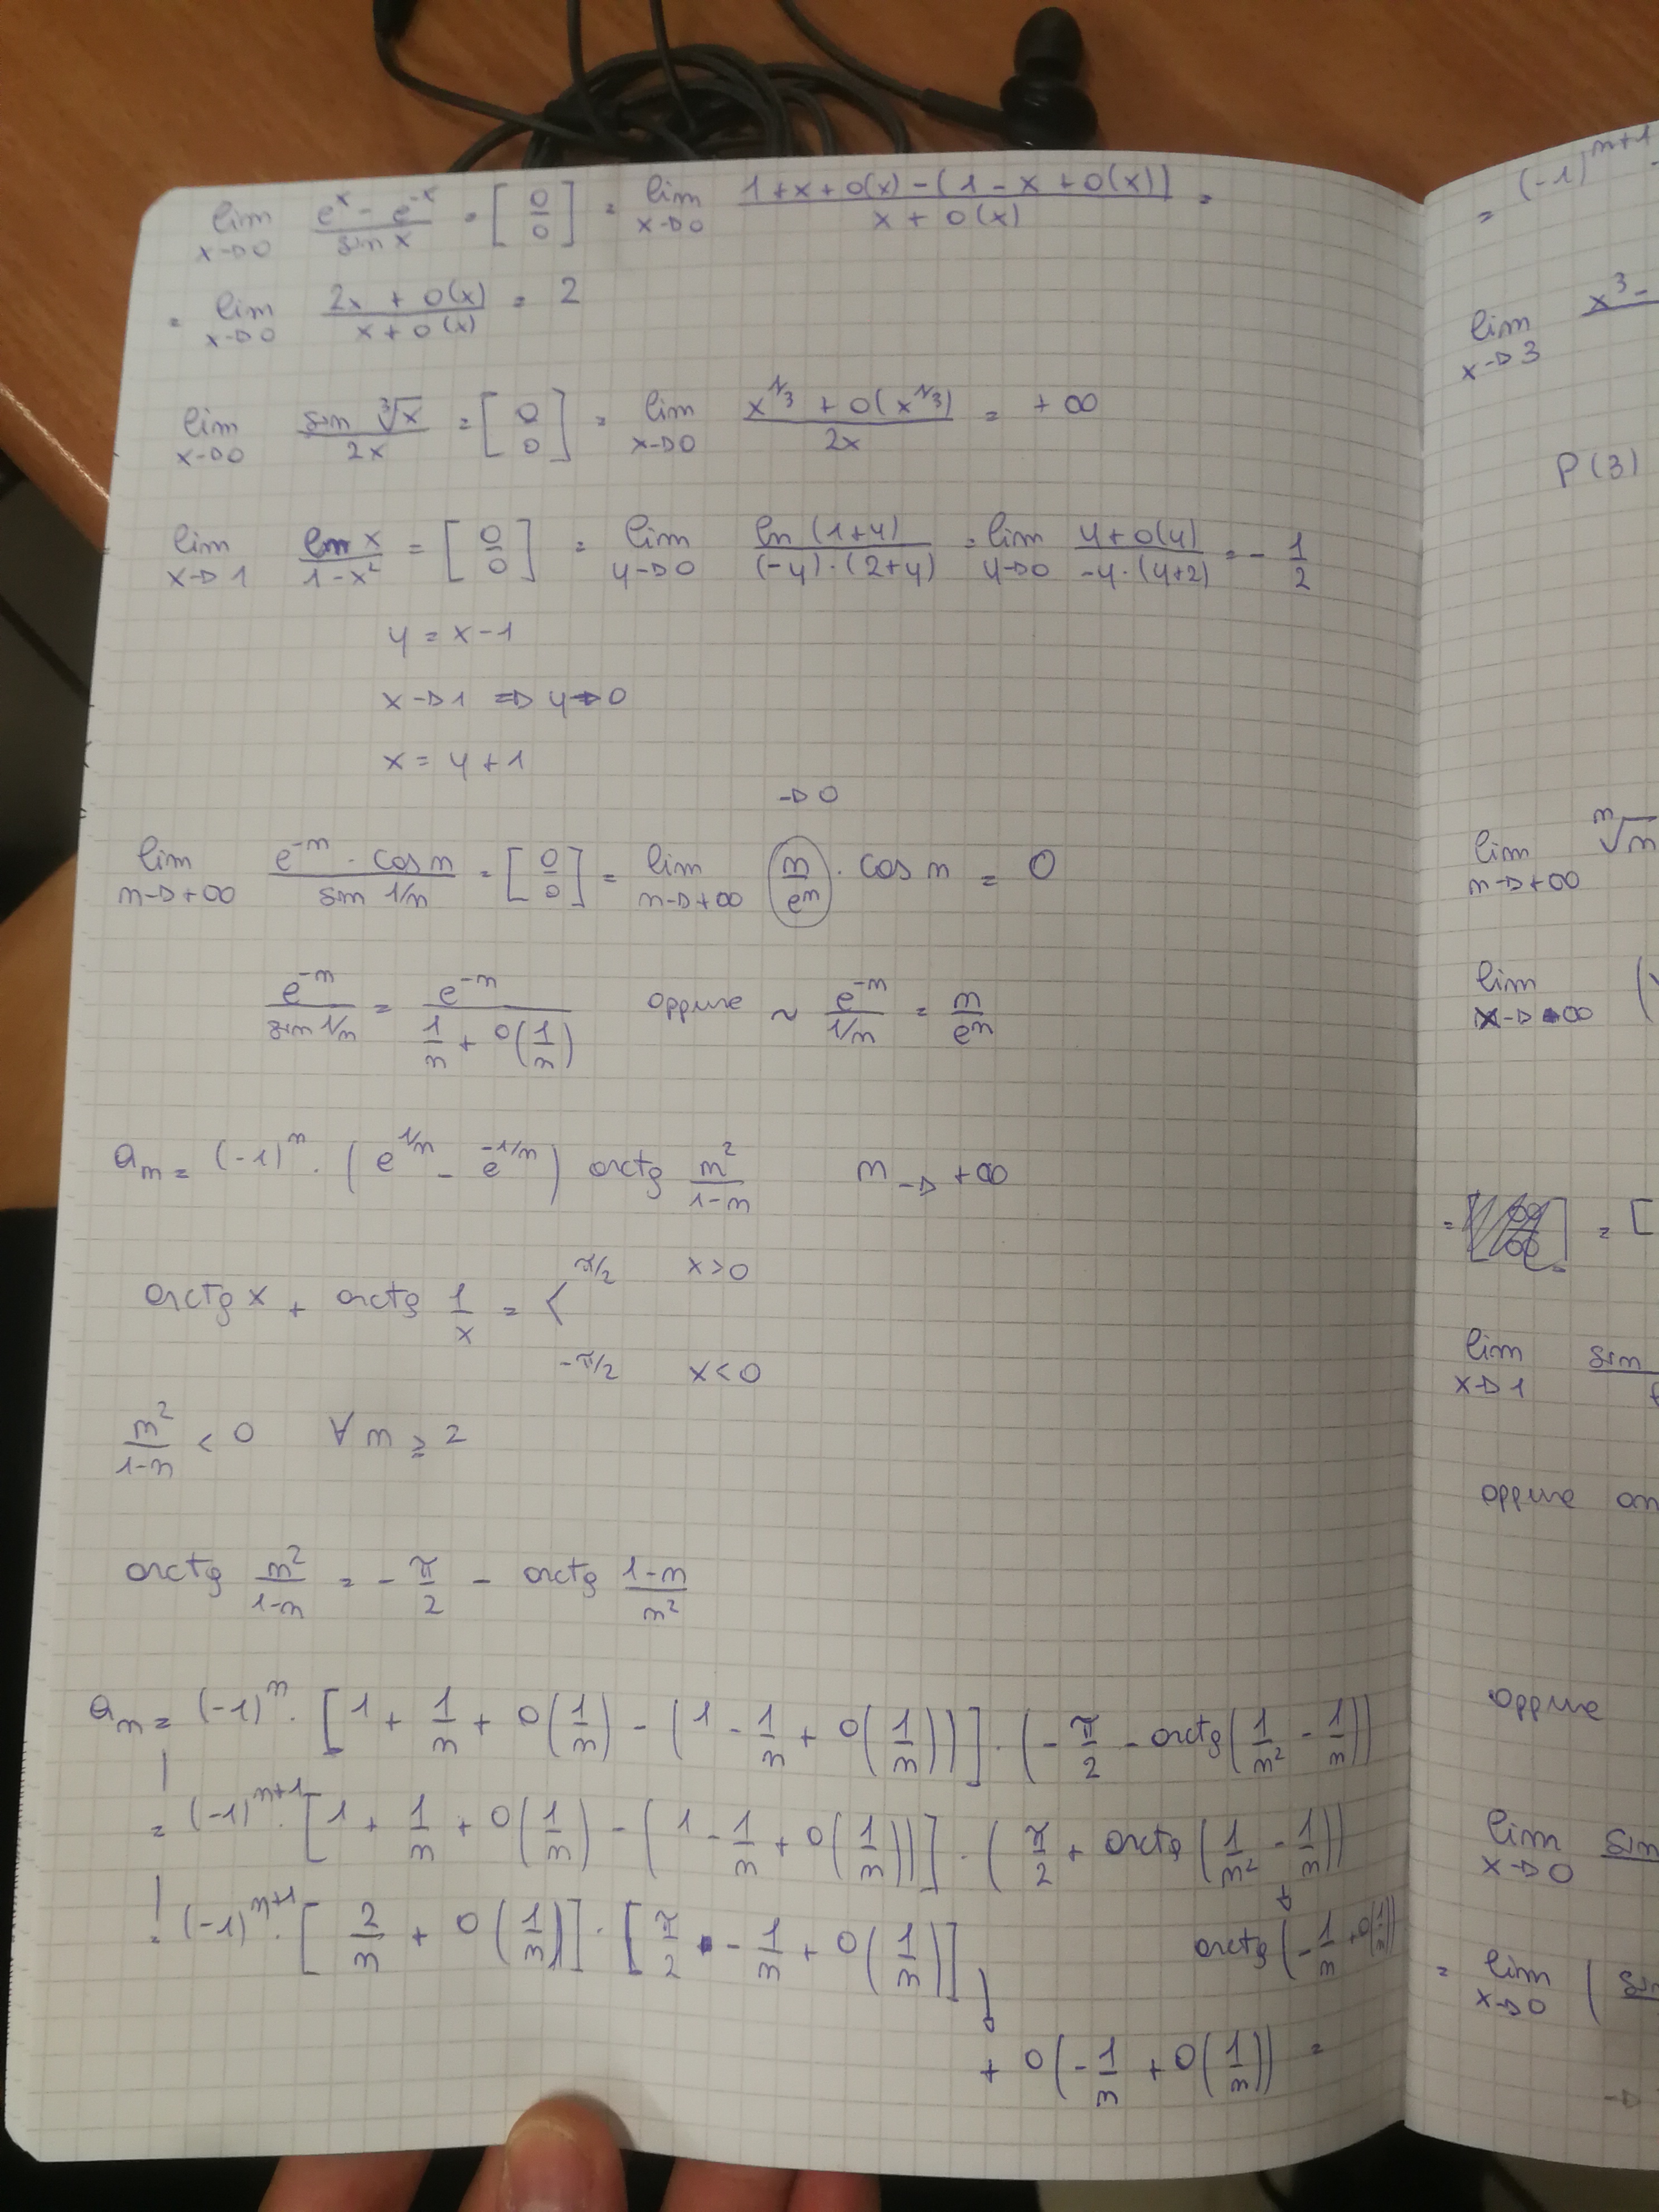 lim x→0 (e^x - e^-x)/(sin x) = [0/0] = lim x→0 (1+x+o(x)-(1-x+o(x)))/(x+o(x)) =
= lim x→0 (2x+o(x))/(x+o(x)) = 2
lim x→0 (sin ∛x)/(2x) = [0/0] = lim x→0 (x^1/3 + o(x^1/3))/(2x) = +∞
lim x→1 (ln x)/(1-x²) = [0/0] = lim y→0 (ln(1+y))/((-y)·(2+y)) = lim y→0 (y+o(y))/(-y·(y+2)) = -1/2
y = x-1
x→1 ⇒ y→0
x = y+1
→0
lim n→+∞ (e^-n · cos n)/(sin 1/n) = [0/0] = lim n→+∞ (n/e^n) · cos n = 0
e^-n/(sin 1/n) = e^-n/(1/n + o(1/n)) oppure ~ e^-n/(1/n) = n/e^n
a_n = (-1)^n · (e^1/n - e^-1/n) arctg n²/(1-n) n→+∞
arctg x + arctg 1/x = < π/2 x>0
-π/2 x<0
n²/(1-n) < 0 ∀ n ≥ 2
arctg n²/(1-n) = -π/2 - arctg (1-n)/n²
a_n = (-1)^n · [1 + 1/n + o(1/n) - (1 - 1/n + o(1/n))] · (-π/2 - arctg(1/n² - 1/n))
= (-1)^n+1 · [1 + 1/n + o(1/n) - (1 - 1/n + o(1/n))] · (π/2 + arctg(1/n² - 1/n))
= (-1)^n+1 · [2/n + o(1/n)] · [π/2 - 1/n + o(1/n)] arctg(-1/n + o(1/n))
+ o(-1/n + o(1/n)) =
= (-1)^n+1
lim x→3 x³-
P(3)
lim n→+∞ ⁿ√n
lim x→-∞ (
= [∞/∞] = [
lim x→1 sin
oppure
oppure
lim x→0 sin
= lim x→0 (
→